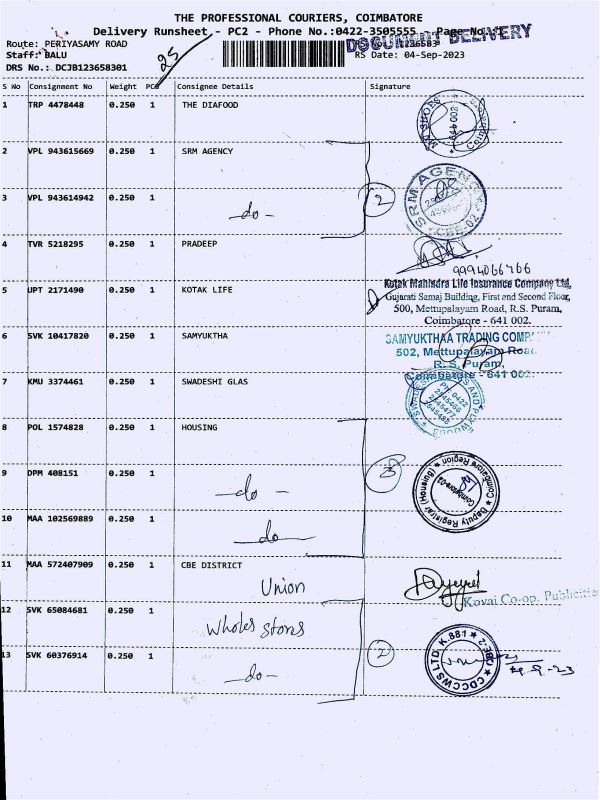 THE PROFESSIONAL COURIERS, COIMBATORE
Delivery Runsheet - PC2 - Phone No.:0422-3505555 Page No.:1
DOCUMENT DELIVERY
Route: PERIYASAMY ROAD
Staff: BALU RS Date: 04-Sep-2023
DRS No.: DCJB123658301
25
S No Consignment No Weight PCS Consignee Details Signature
1 TRP 4478448 0.250 1 THE DIAFOOD
2 VPL 943615669 0.250 1 SRM AGENCY
SRM AGENC
CBE-02
3 VPL 943614942 0.250 1 -do- 2
4 TVR 5218295 0.250 1 PRADEEP
9994066766
5 UPT 2171490 0.250 1 KOTAK LIFE
Kotak Mahindra Life Insurance Company Ltd,
Gujarati Samaj Building, First and Second Floor,
500, Mettupalayam Road, R.S. Puram,
Coimbatore - 641 002.
6 SVK 10417820 0.250 1 SAMYUKTHA
SAMYUKTHAA TRADING COMP
502, Mettupalayam Road
R. S. Puram,
Coimbatore - 641 002.
7 KMU 3374461 0.250 1 SWADESHI GLAS
PH: 0422
2545466
2545477
2545488
8 POL 1574828 0.250 1 HOUSING
9 DPM 408151 0.250 1 -do- 3
Deputy Registrar (Housing)
Coimbatore Region
Coimbatore-02
10 MAA 102569889 0.250 1 -do-
11 MAA 572407909 0.250 1 CBE DISTRICT
Union
Kovai Co-op. Publicities
12 SVK 65084681 0.250 1 Wholes stores
13 SVK 60376914 0.250 1 -do- 2
CDCCWS LTD. K.881 CBE-2
4-9-23